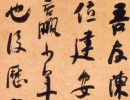 吾友陳
位建安
贏少年
也後歷